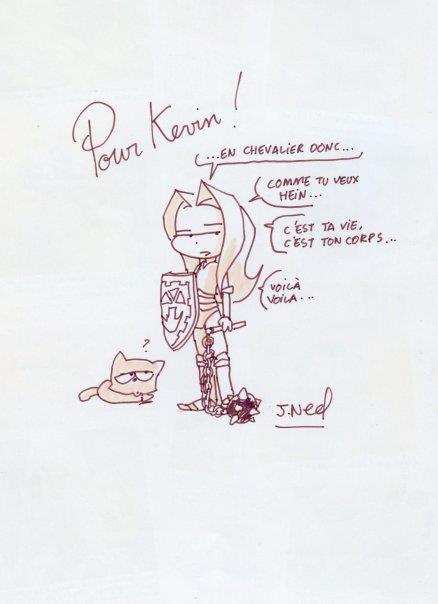 Pour Kevin !
...EN CHEVALIER DONC...
COMME TU VEUX
HEIN...
C'EST TA VIE,
C'EST TON CORPS...
VOILÀ
VOILA...
?
J.Neel